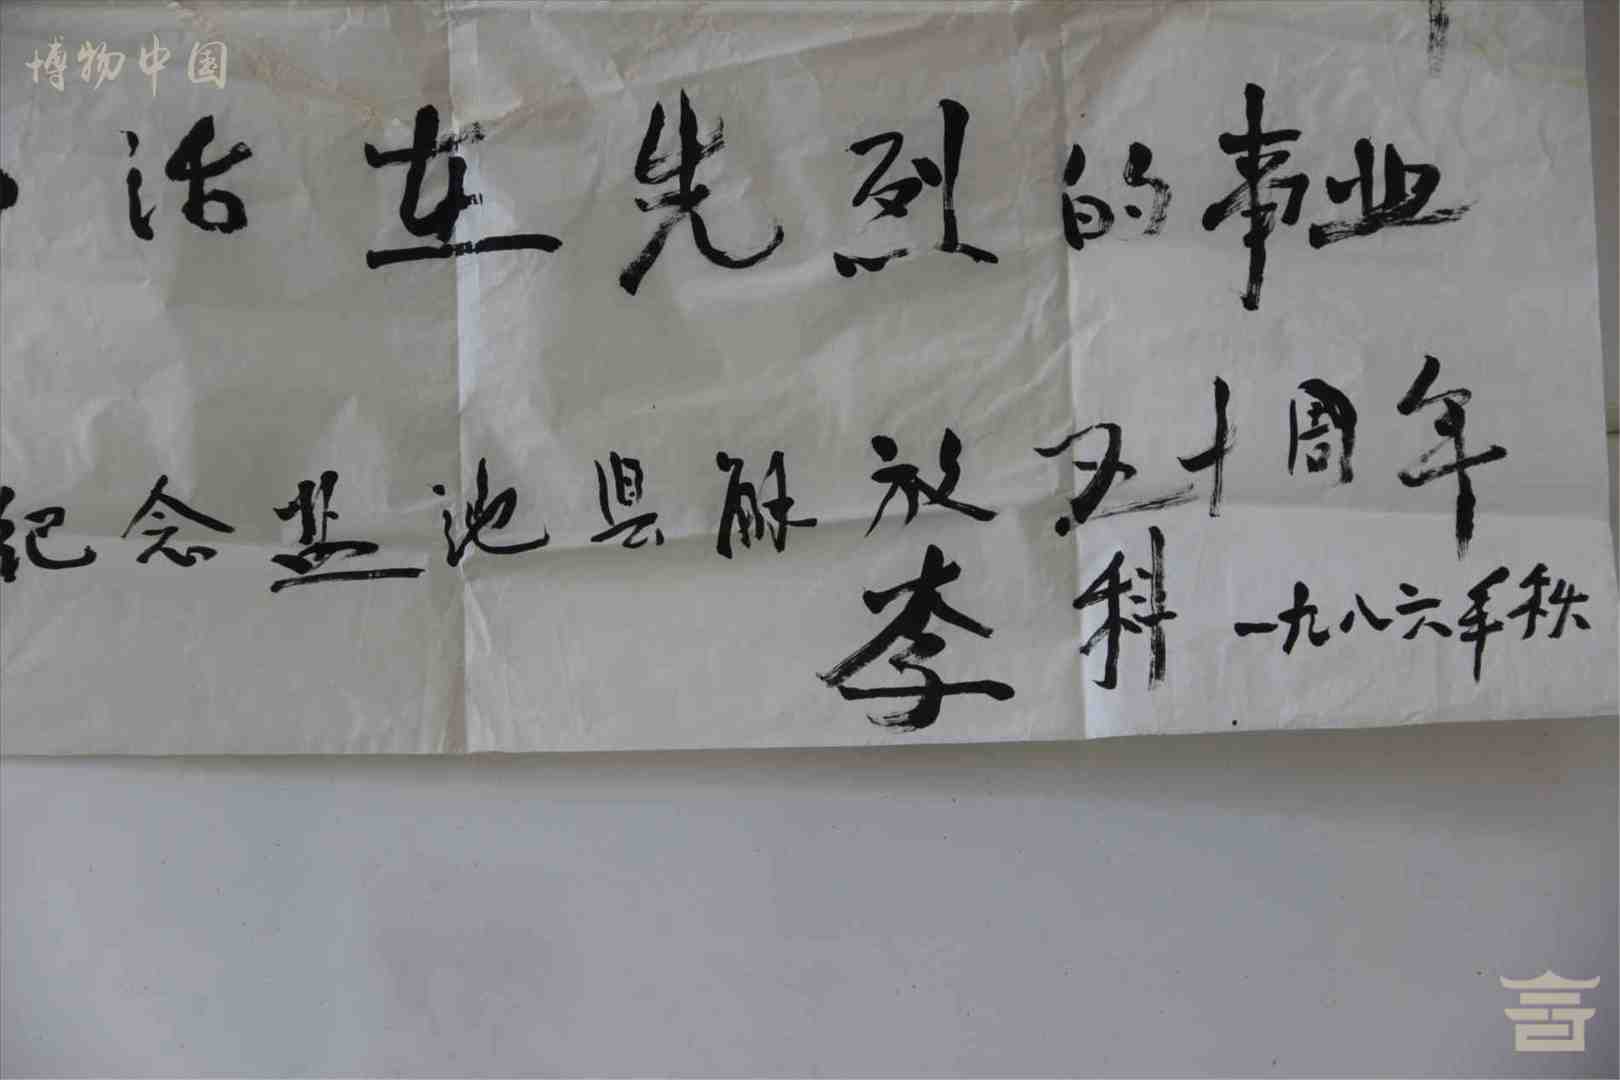 博物中国
活在先烈的事业
纪念盐池县解放五十周年
李科 一九八六年秋